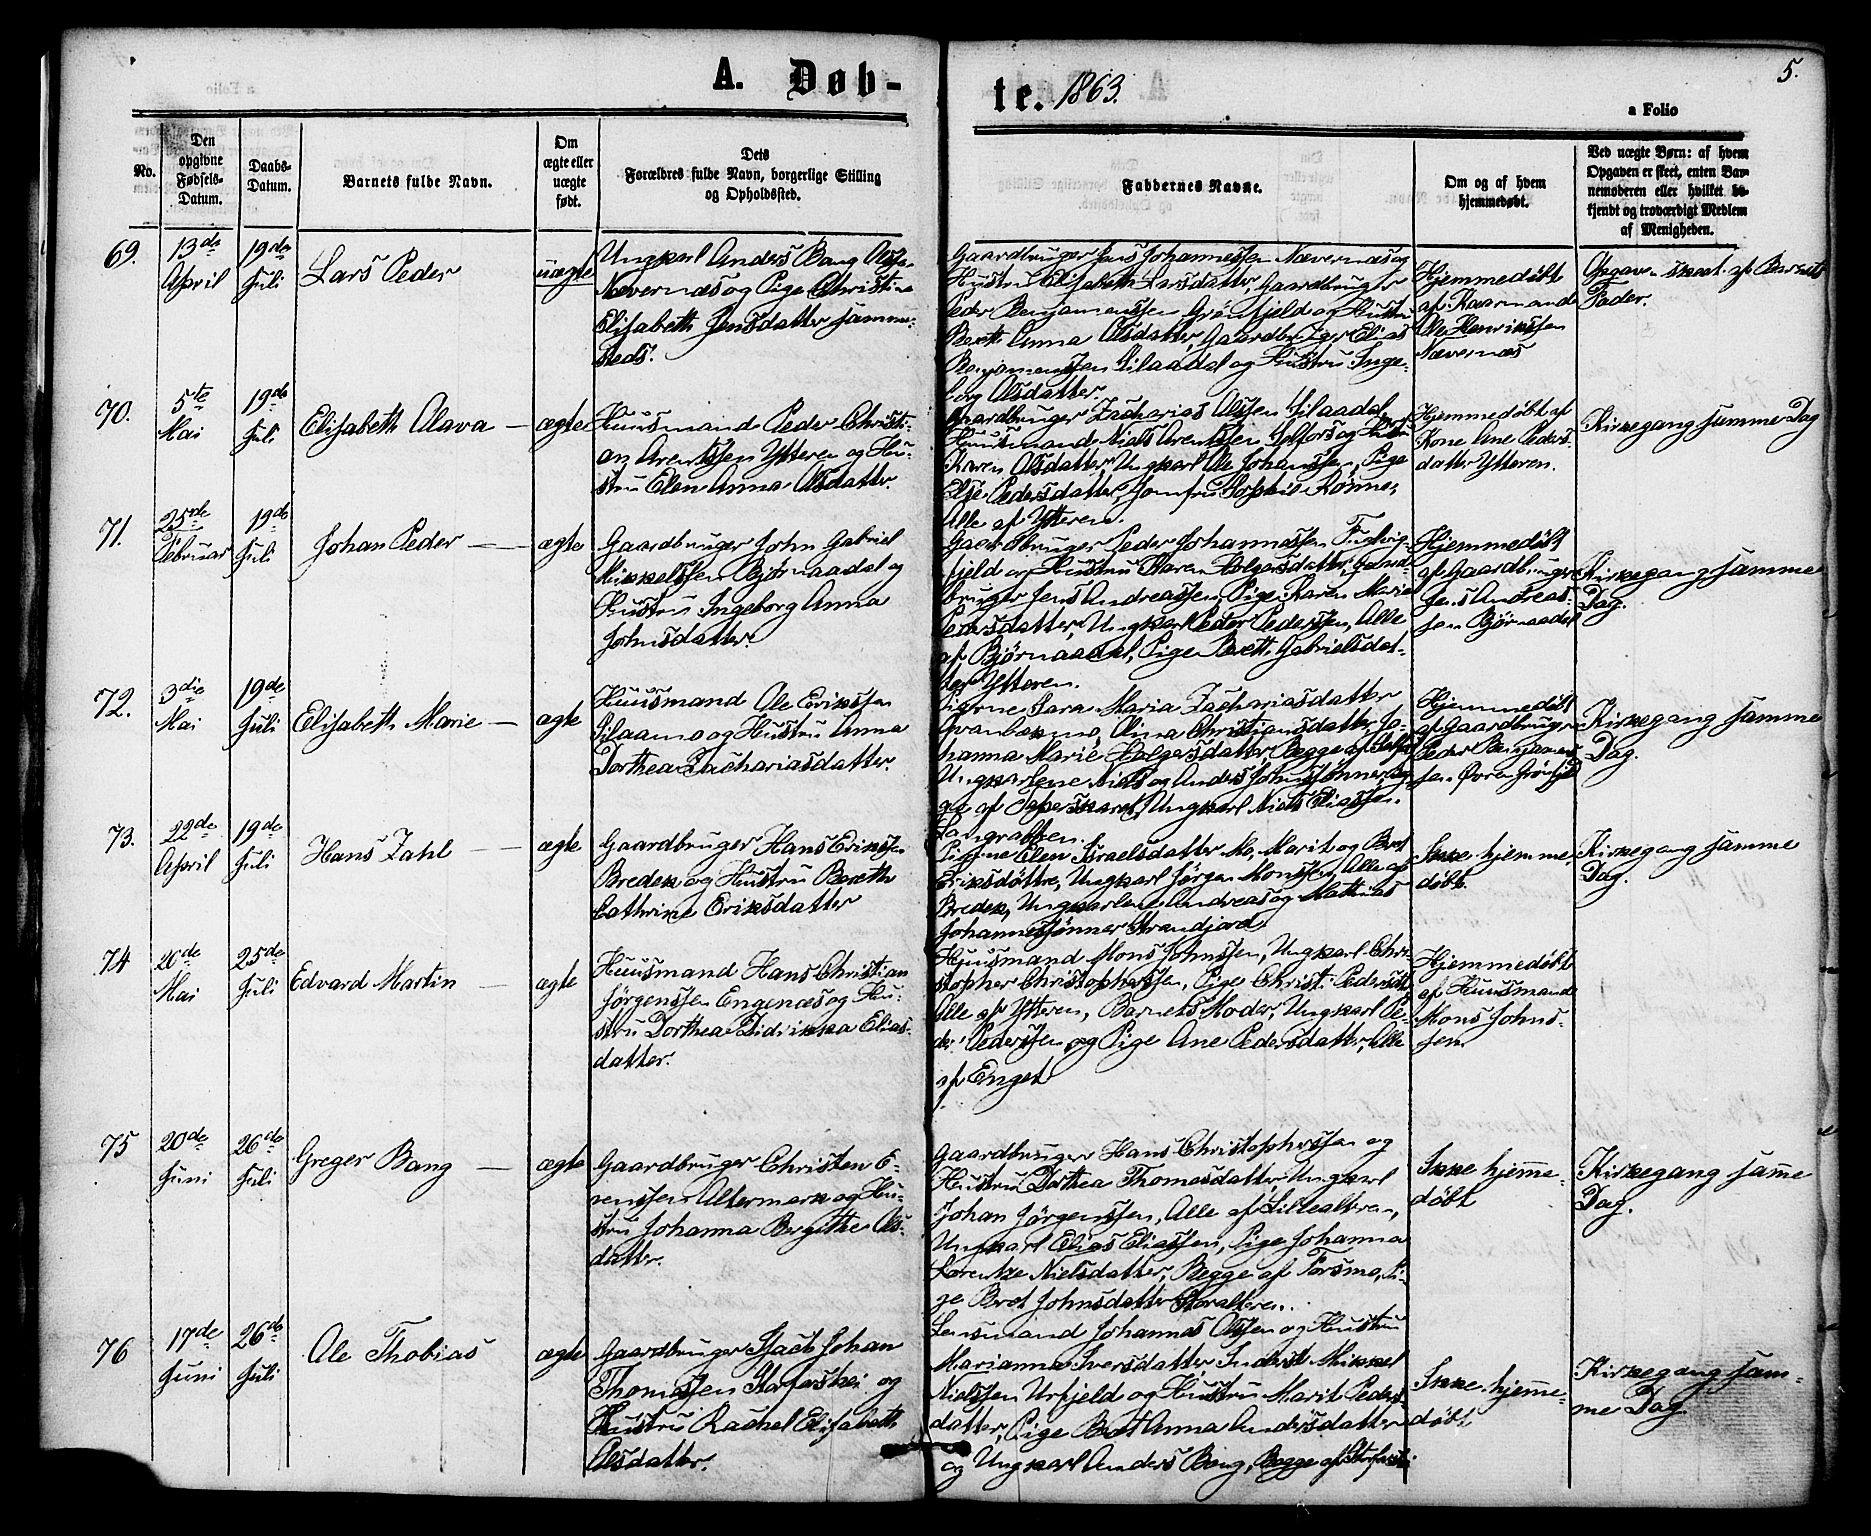 A. Døb-
te. 1863.
5.
a Folio
No.
Den
opgivne
Fødsels-
Datum.
Daabs-
Datum.
Barnets fulde Navn.
Om
ægte eller
uægte
født.
Dets
Forældres fulde Navn, borgerlige Stilling
og Opholdssted.
Faddernes Navne.
Om og af hvem
hjemmedøbt.
Ved uægte Børn: af hvem
Opgaven er skeet, enten Bar-
nemoderen eller hvilket be-
kjendt og troværdigt Medlem
af Menigheden.
69.
13de
April
19de
Juli
Lars Peder
uægte
Ungkarl Anders Bang Olsen
Nævernæs og Pige Christine
Elisabeth Jensdatter samme-
steds.
Gaardbruger Jens Johannessen Nævernæs og
Hustru Elisabeth Larsdatter, Gaardbruger
Peder Benjamenssen Grønfjeld og Hustru
Berith Anna Olsdatter, Gaardbruger Elias
Benjamenssen Silaadal og Hustru Inge-
borg Olsdatter.
Hjemmedøbt
af Kaarmand
Ole Henrikssen
Nævernæs
Opgaven skeet af Barnets
Fader.
70.
5te
Mai
19de
Juli
Elisabeth Olava
ægte
Huusmand Peder Christi-
an Arentssen Ytteren og Hu-
stru Elen Anna Olsdatter.
Gaardbruger Zacharias Olssen Silaadal,
Huusmand Niels Arentssen Selfors og Hustru
Karen Olsdatter, Ungkarl Ole Johanssen, Pige
Else Pedersdatter, Jomfru Sophie Rønne,
Alle af Ytteren.
Hjemmedøbt af
Kone Ane Peders-
datter Ytteren.
Kirkegang samme Dag
71.
25de
Februar
19de
Juli
Johan Peder
ægte
Gaardbruger John Gabriel
Mikkelssen Bjørnaadal og
Hustru Ingeborg Anna
Johnsdatter.
Gaardbruger Peder Johannessen Fuglvig-
fjeld og Hustru Maren Holgersdatter, Gaard-
bruger Jens Andreassen, Pige Karen Marie
Pedersdatter, Ungkarl Peder Pederssen, Alle
af Bjørnaadal, Pige Berith Gabrielsdat-
ter Ytteren.
Hjemmedøbt
af Gaardbruger
Jens Andreas-
sen Bjørnaadal
Kirkegang samme
Dag.
72.
3die
Mai
19de
Juli
Elisabeth Marie
ægte
Huusmand Ole Erikssen
Silaamo og Hustru Anna
Dorthea Zachariasdatter.
Pigerne Sara Maria Zachariasdatter
Olina Christiansdatter, Jo-
hanna Marie Holgersdatter, Begge af
Ungkarlene Niels og Anders Johnssønner, Beg-
ge af Ungkarl Niels Eliassen
Langratten.
Hjemmedøbt
af Gaardbruger
Peder Benjamens-
sen Øvre Grønfjeld
Kirkegang samme
Dag.
73.
22de
April
19de
Juli
Hans Zahl
ægte
Gaardbruger Hans Erikssen
Bredek og Hustru Berethe
Cathrine Eriksdatter
Pigerne Elen Israelsdatter Mo, Marit og Bret
Eriksdøttre, Ungkarl Jørgen Monssen, Alle af
Bredek, Ungkarlene Andreas og Mathias
Johannessønner Strandjord
Ikke hjemme-
døbt.
Kirkegang samme
Dag.
74
20de
Mai
25de
Juli
Edvard Martin
ægte
Huusmand Hans Christian
Jørgenssen Engenæs og Hu-
stru Dorthea Didrikka Elias-
datter.
Huusmand Mons Johnssen, Ungkarl Chri-
stopher Christopherssen, Pige Christi Pedersdtr
Alle af Ytteren, Barnets Moder, Ungkarl Pe-
der Pederssen og Pige Ane Pedersdatter, Alle
af Enget
Hjemmedøbt
af Huusmand
Mons Johns-
sen
75
20de
Juni
26de
Juli
Greger Bang
ægte
Gaardbruger Christen E-
venssen Altermark og Hu-
stru Johanna Bergithe Ols-
datter.
Gaardbruger Hans Christopherssen og
Hustru Dorthea Thomesdatter, Ungkarl
Johan Jørgenssen, Alle af Lillealteren,
Ungkarl Elias Eliassen, Pige Johanna
Lorentze Nielsdatter, Begge af Forsmo, Pi-
ge Bret Johnsdatter Storalteren.
Ikke hjemme-
døbt
Kirkegang samme
Dag.
76
17de
Juni
26de
Juli
Ole Thobias
ægte
Gaardbruger Isach Johan
Thomessen Storforshei og
Hustru Rachel Elisabeth
Olsdatter.
Lensmand Johannes Olssen og Hustru
Marianna Iversdatter, Inderst Mikkel
Nielssen Urfjeld og Hustru Marit Peders-
datter, Pige Bret Anna Andersdatter
og Ungkarl Anders Bang, Begge af Storforshei
Ikke hjemme-
døbt
Kirkegang sam-
me Dag